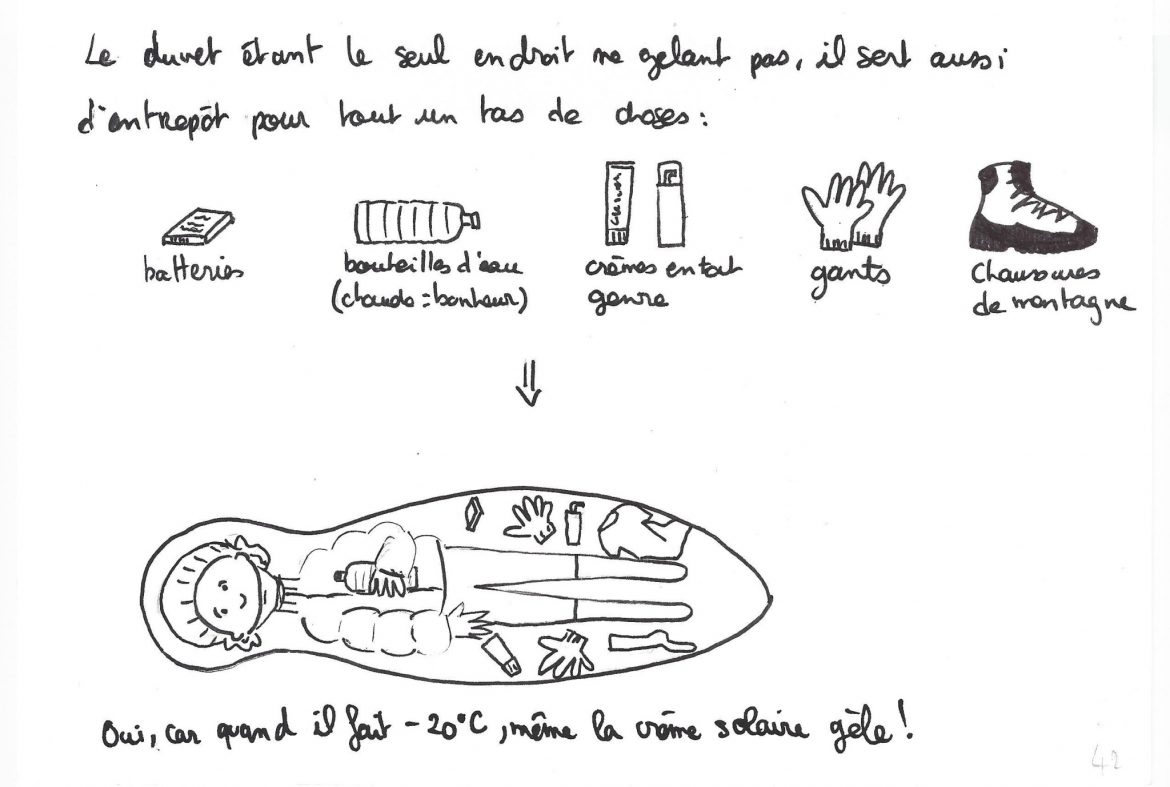 Le duvet étant le seul endroit ne gelant pas, il sert aussi
d'entrepôt pour tout un tas de choses :
batteries
bouteilles d'eau
(chaude = bonheur)
crèmes en tout
genre
gants
Chaussures
de montagne
Oui, car quand il fait -20°C, même la crème solaire gèle !
42